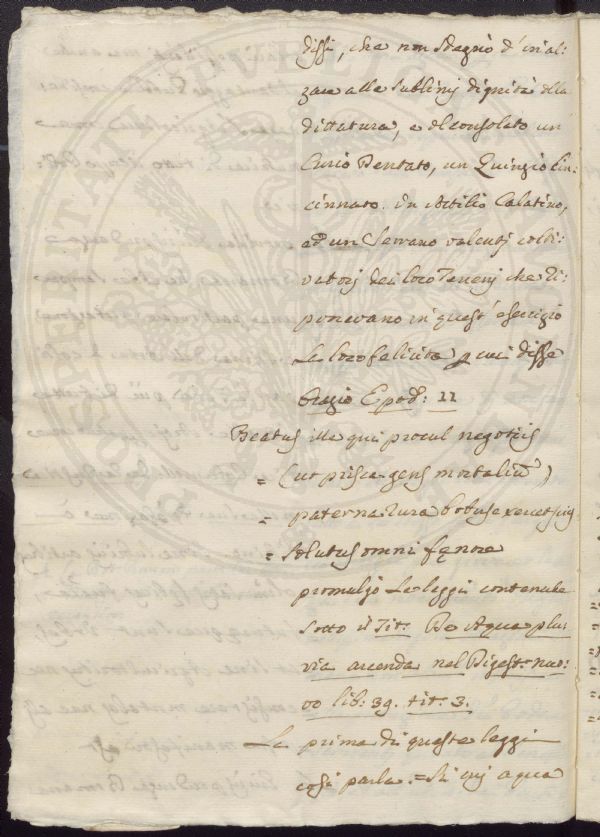 dissi, che non sdegnò d'inal:
zare alle sublimj dignità della
dittatura, e del consolato un
Curio Dentato, un Quinzio Cin:
cinnato. Un Attilio Calatino,
ad un Serrano valentj colti:
vatorj dei loro Terrenj che ri:
ponevano in quest'esercizio
La loro felicità per cui disse
Orazio Epod: 11
Beatus ille qui procul negotijs
= (ut prisca gens mortaliũ)
= paterna rura bobus exercet suis
= solutus omni fęnore
promulgò Le leggi contenute
sotto il Tit. De Aqua plu:
via arcenda nel Digest. nuo:
vo lib: 39. tit. 3.
La prima di queste leggi
così parla = Si cuj aqua